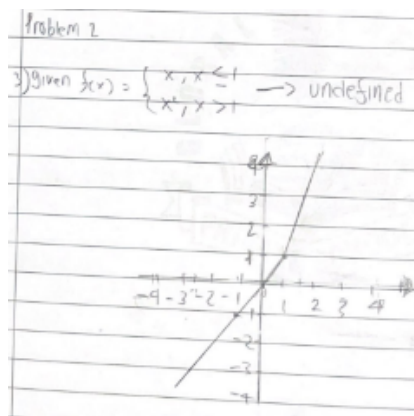 Problem 2
3) given f(x) = { x, x ≤ 1 → undefined
x², x > 1
4
3
2
1
-4 -3 -2 -1 0 1 2 3 4
-1
-2
-3
-4